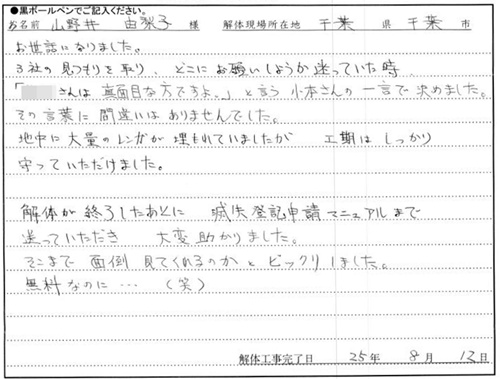 ●黒ボールペンでご記入ください。
お名前 山野井 由梨子 様 解体現場所在地 千葉 県 千葉 市
お世話になりました。
3社の見つもりを取り、どこにお願いしようか迷っていた時
「 さんは真面目な方ですよ。」と言う小本さんの一言で決めました。
その言葉に間違いはありませんでした。
地中に大量のレンガが埋もれていましたが 工期はしっかり
守っていただけました。
解体が終了したあとに 滅失登記申請マニュアルまで
送っていただき 大変助かりました。
そこまで 面倒 見てくれるのかと ビックリしました。
無料なのに… (笑)
解体工事完了日 25年 8月 12日